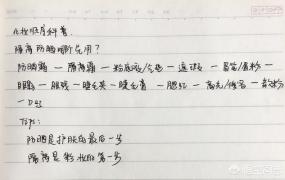 化妆顺序科普
隔离防晒哪个先用?
防晒霜 — 隔离霜 — 粉底液/气垫 — 遮瑕 — 蜜粉 —
眼影 — 眼线 — 睫毛夹 — 睫毛膏 — 腮红 — 高光/修容 — 散粉
— 口红
Tips:
防晒是护肤的最后一步
隔离是彩妆的第一步